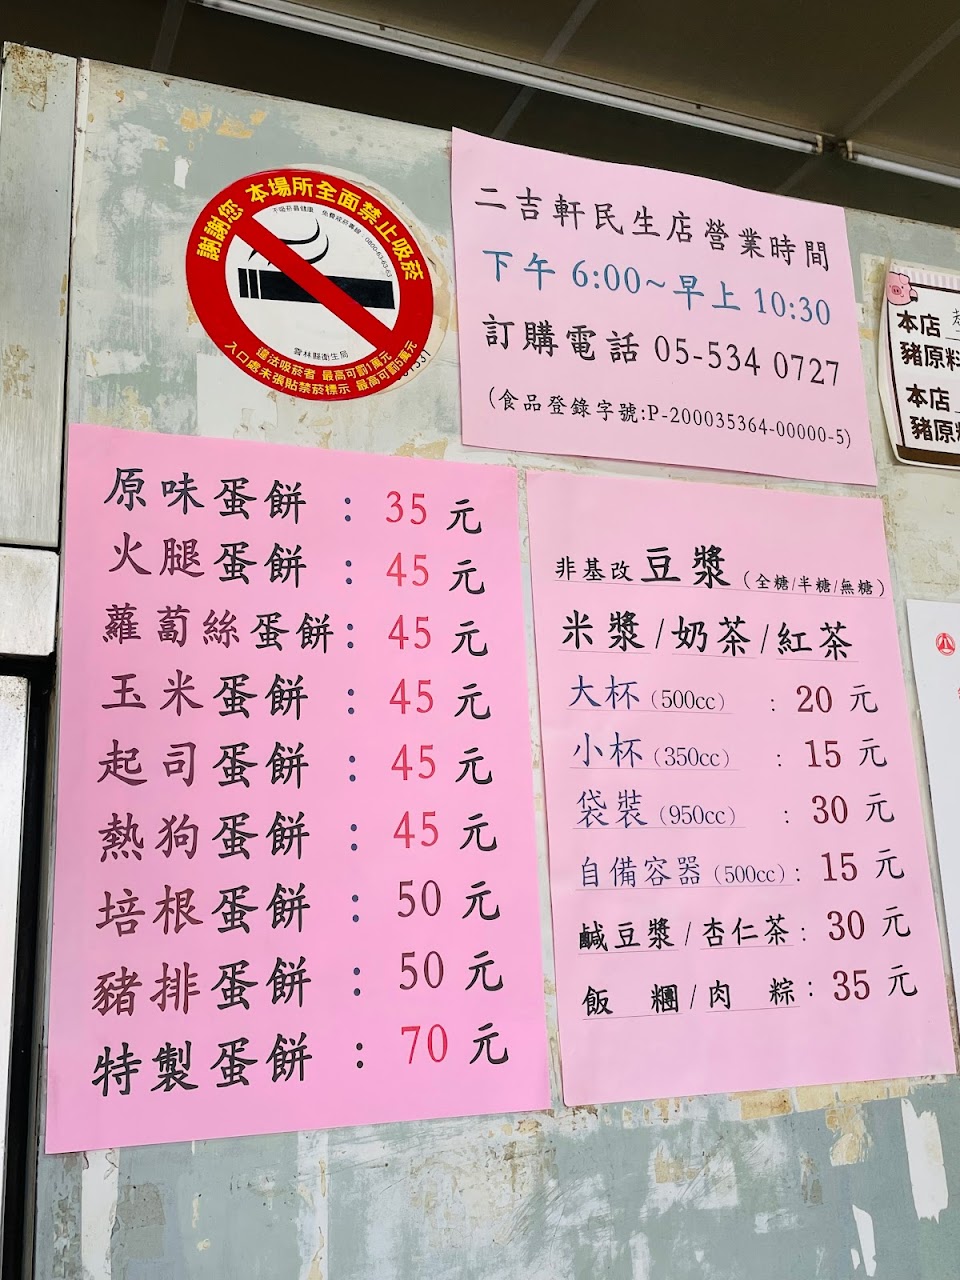 謝謝您 本場所全面禁止吸菸
不吸菸最健康 免費戒菸專線：0800-63-63-63
雲林縣衛生局
違法吸菸者 最高可罰1萬元
入口處未張貼禁菸標示 最高可罰5萬元
二吉軒民生店營業時間
下午 6:00~早上 10:30
訂購電話 05-534 0727
(食品登錄字號:P-200035364-00000-5)
本店
豬原料
本店
豬原
原味蛋餅 : 35 元
火腿蛋餅 : 45 元
蘿蔔絲蛋餅 : 45 元
玉米蛋餅 : 45 元
起司蛋餅 : 45 元
熱狗蛋餅 : 45 元
培根蛋餅 : 50 元
豬排蛋餅 : 50 元
特製蛋餅 : 70 元
非基改豆漿(全糖/半糖/無糖)
米漿/奶茶/紅茶
大杯(500cc) : 20 元
小杯(350cc) : 15 元
袋裝(950cc) : 30 元
自備容器(500cc) : 15 元
鹹豆漿/杏仁茶 : 30 元
飯 糰/肉 粽 : 35 元